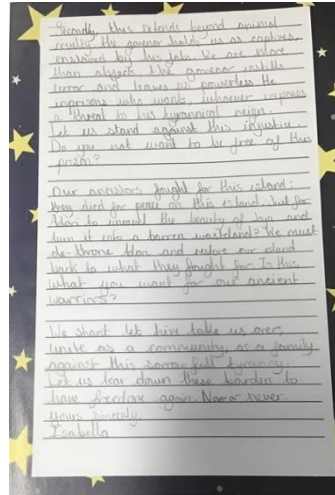 Secondly, this extends beyond animal
cruelty the govenor holds us as captives,
enslaved by his Jobs. We are more
than objects the govenor instills
terror and leaves us powerless He
inprisons who wants, whoever
a threat to his tyrannical reign.
Let us stand against this injustice.
Do you not want to be free of this
prison?
Our ancestors fought for this island:
they died for peace on this island. Just for
to the beauty of and
turn it into a barren wasteland? We must
de-throne and restore our island
back to what they fought for. Is this
what you want for our ancient
warriors?
We shant let him take us over,
unite as a community, as a family
against this sorrow full tyranny.
Let us tear down these borders to
have freedom again. Now or never.
Yours sincerely,
Isabella